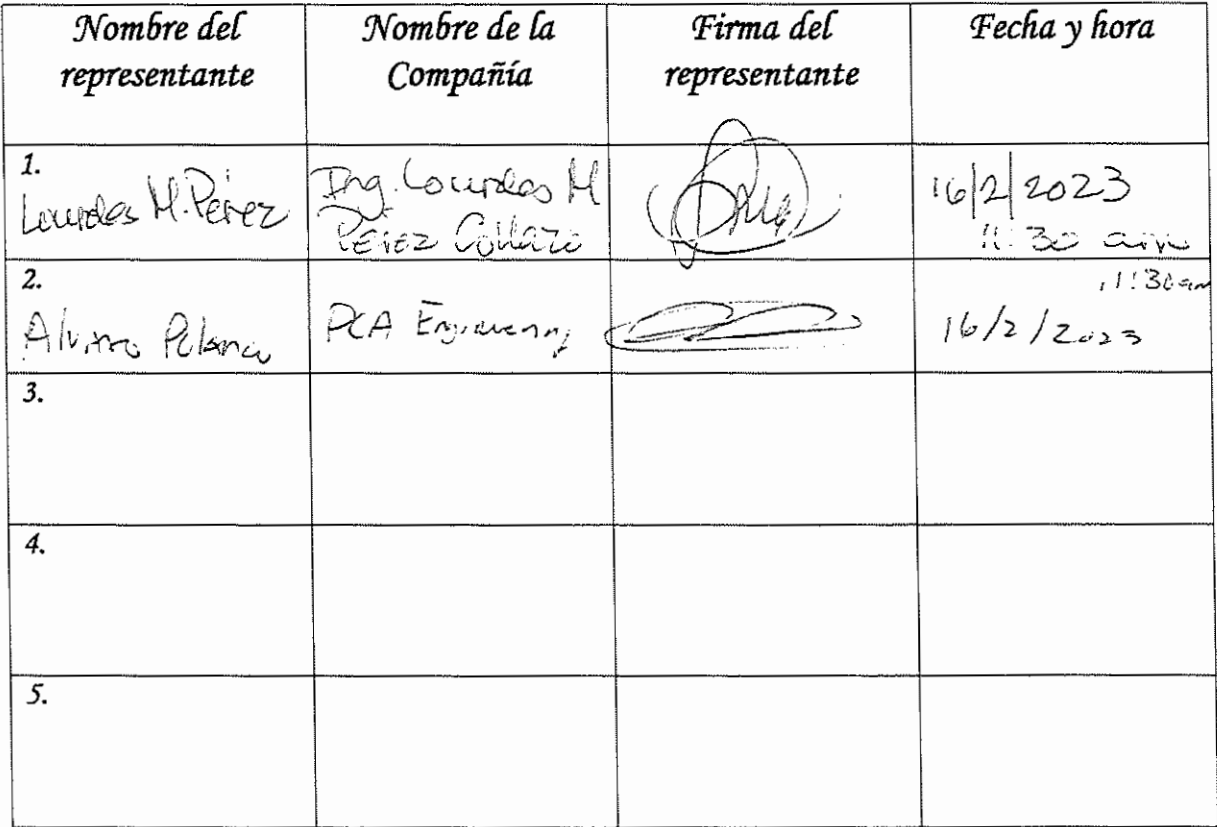 Nombre del representante
Nombre de la Compañía
Firma del representante
Fecha y hora
1.
Lourdes M. Pérez
Ing. Lourdes M
Pérez Collazo
16/2/2023
11:30 am
2.
Alvaro Polanco
PCA Engineering
11:30 am
16/2/2023
3.
4.
5.